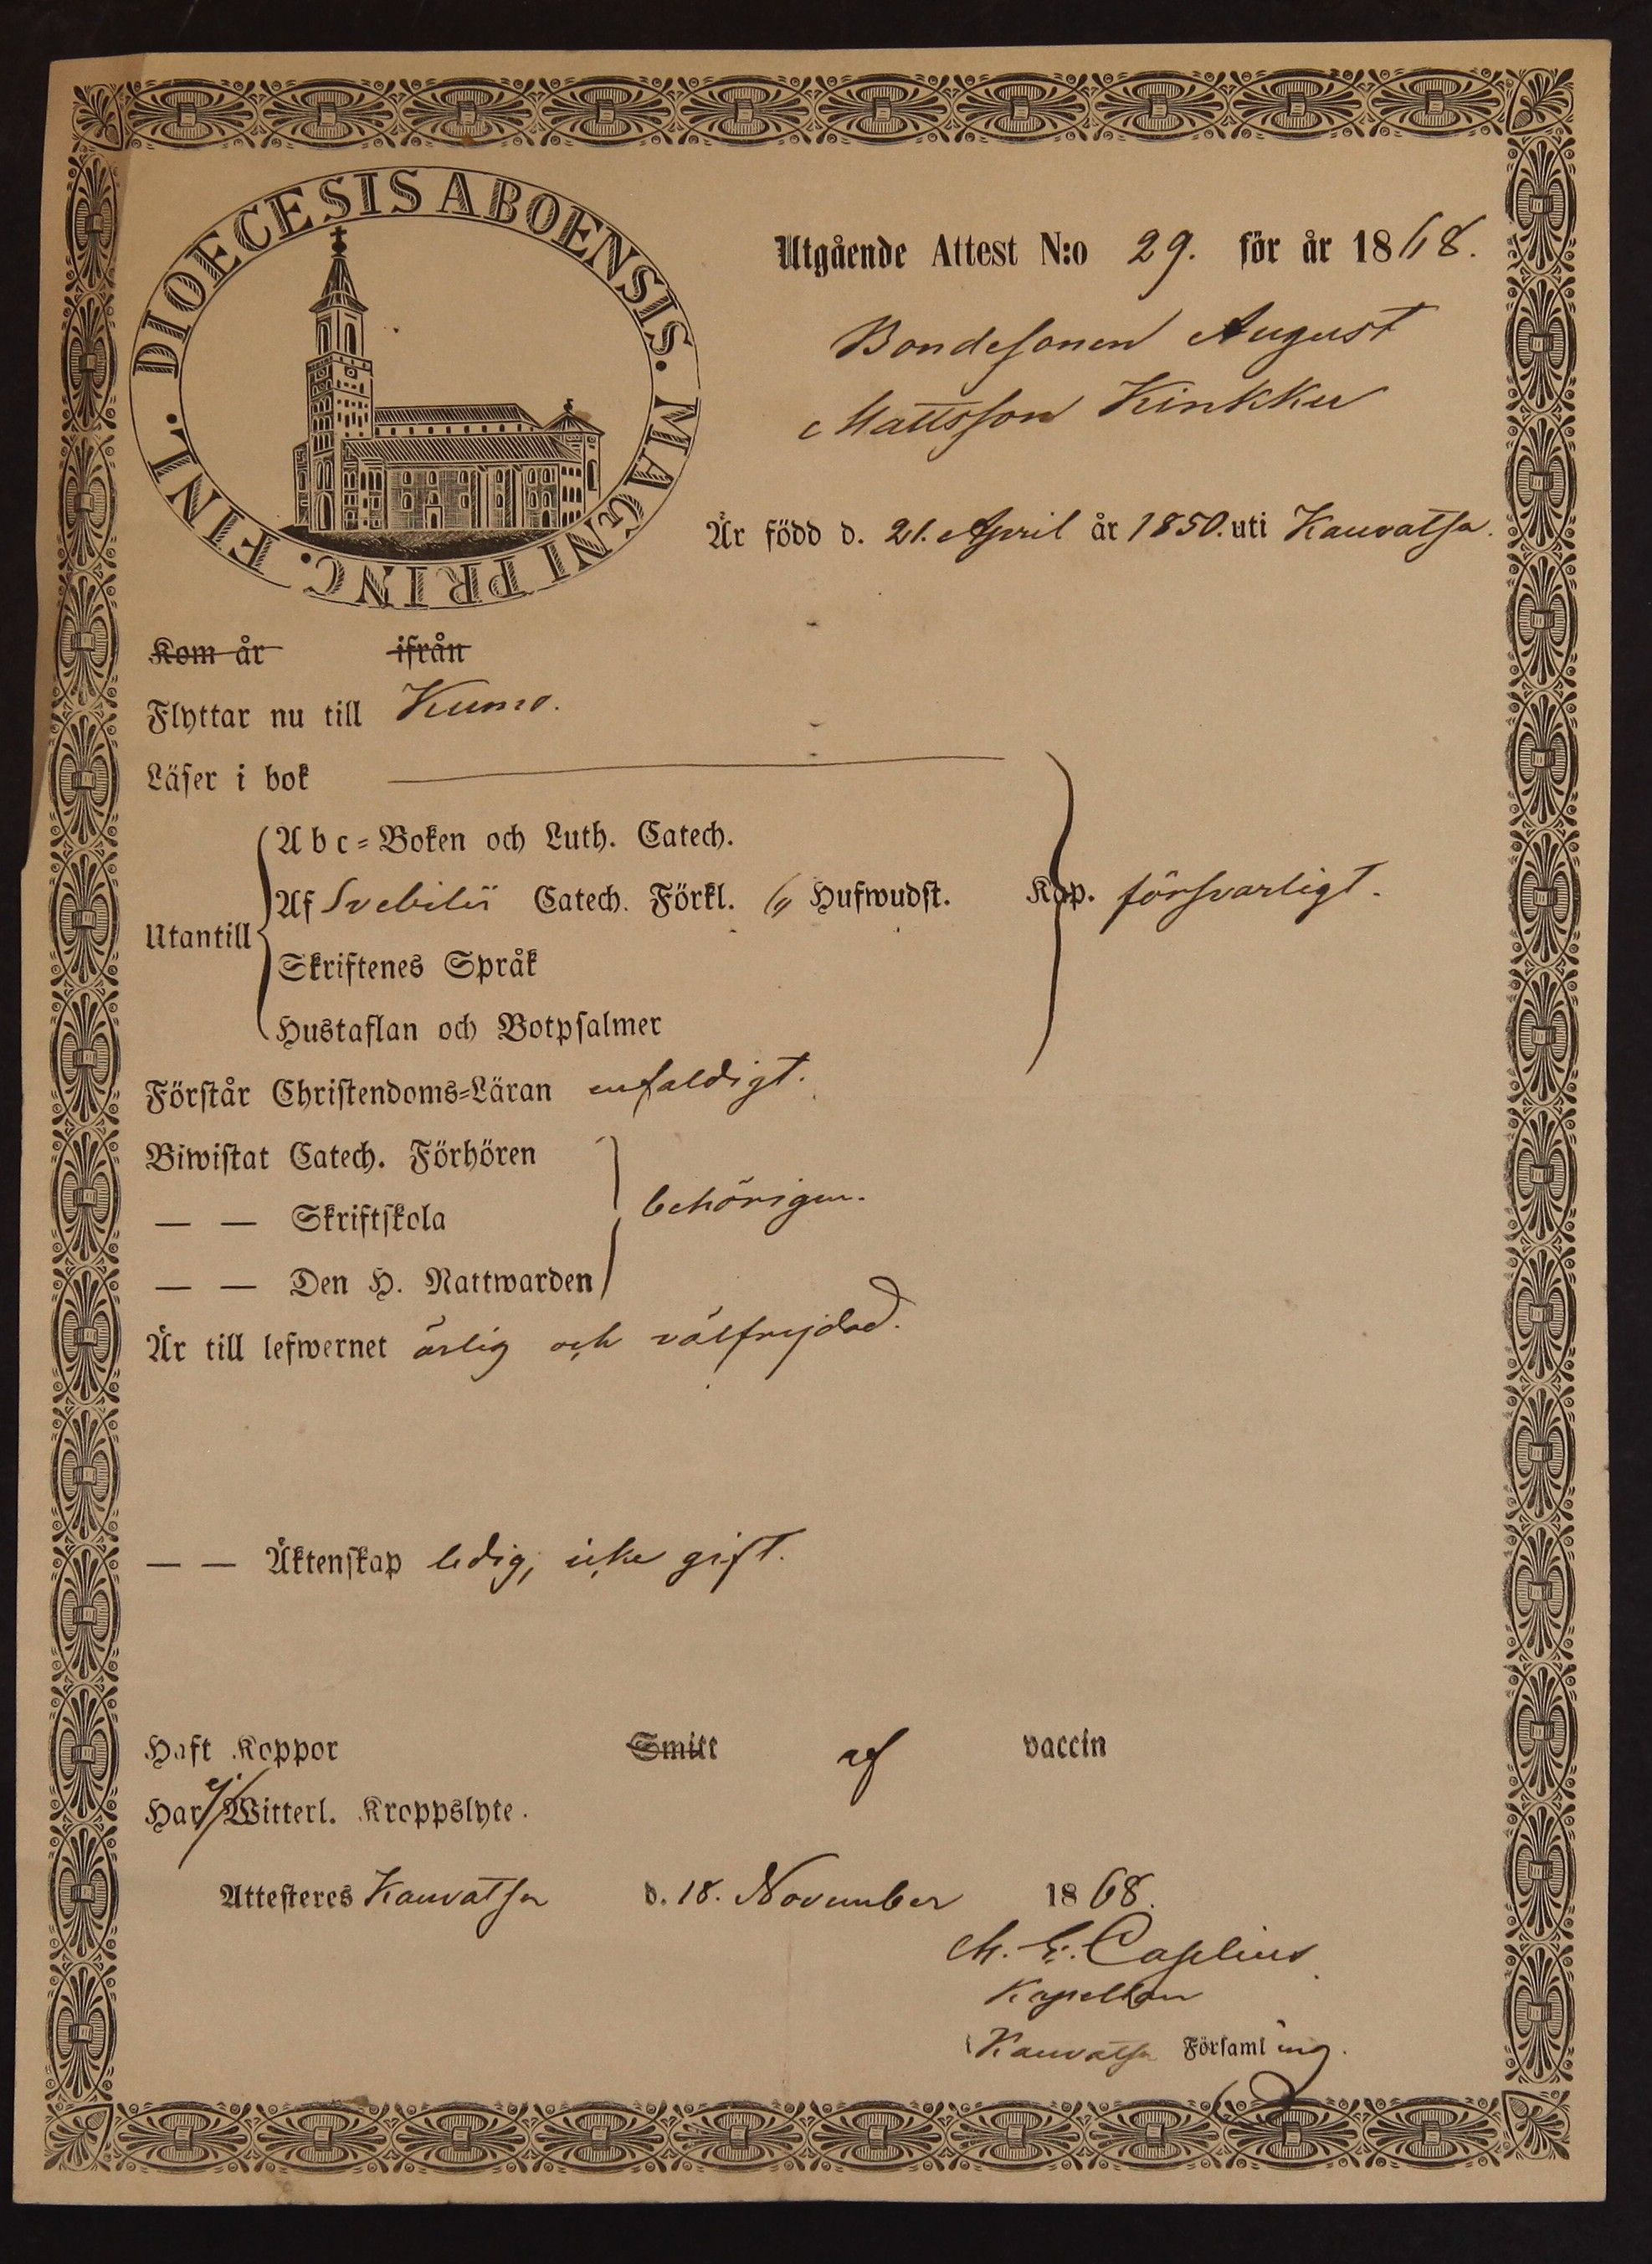 DIOECESIS ABOENSIS. MAGNI PRINC. FINL.
Utgående Attest N:o 29. för år 1868.
Bondesonen August
Mattsson Kinkku
Är född d. 21. April år 1850. uti Kauvatsa.
Kom år ifrån
Flyttar nu till Kumo.
Läser i bok
Utantill
Abc-Boken och Luth. Catech.
Af Svebilii Catech. Förkl. Hufwudst. Kap. försvarligt.
Skriftenes Språk
Hustaflan och Botpsalmer
Förstår Christendoms-Läran enfaldigt.
Biwistat Catech. Förhören
— — Skriftskola behörigen.
— — Den H. Nattwarden
Är till lefwernet ärlig och välfrejdad.
— — Äktenskap ledig, icke gift.
Haft Koppor Smitt af vaccin
Har ej Witterl. Kroppslyte.
Attesteres Kauvatsa d. 18. November 1868.
Caselius
Kapellan
Kauvatsa Församling.